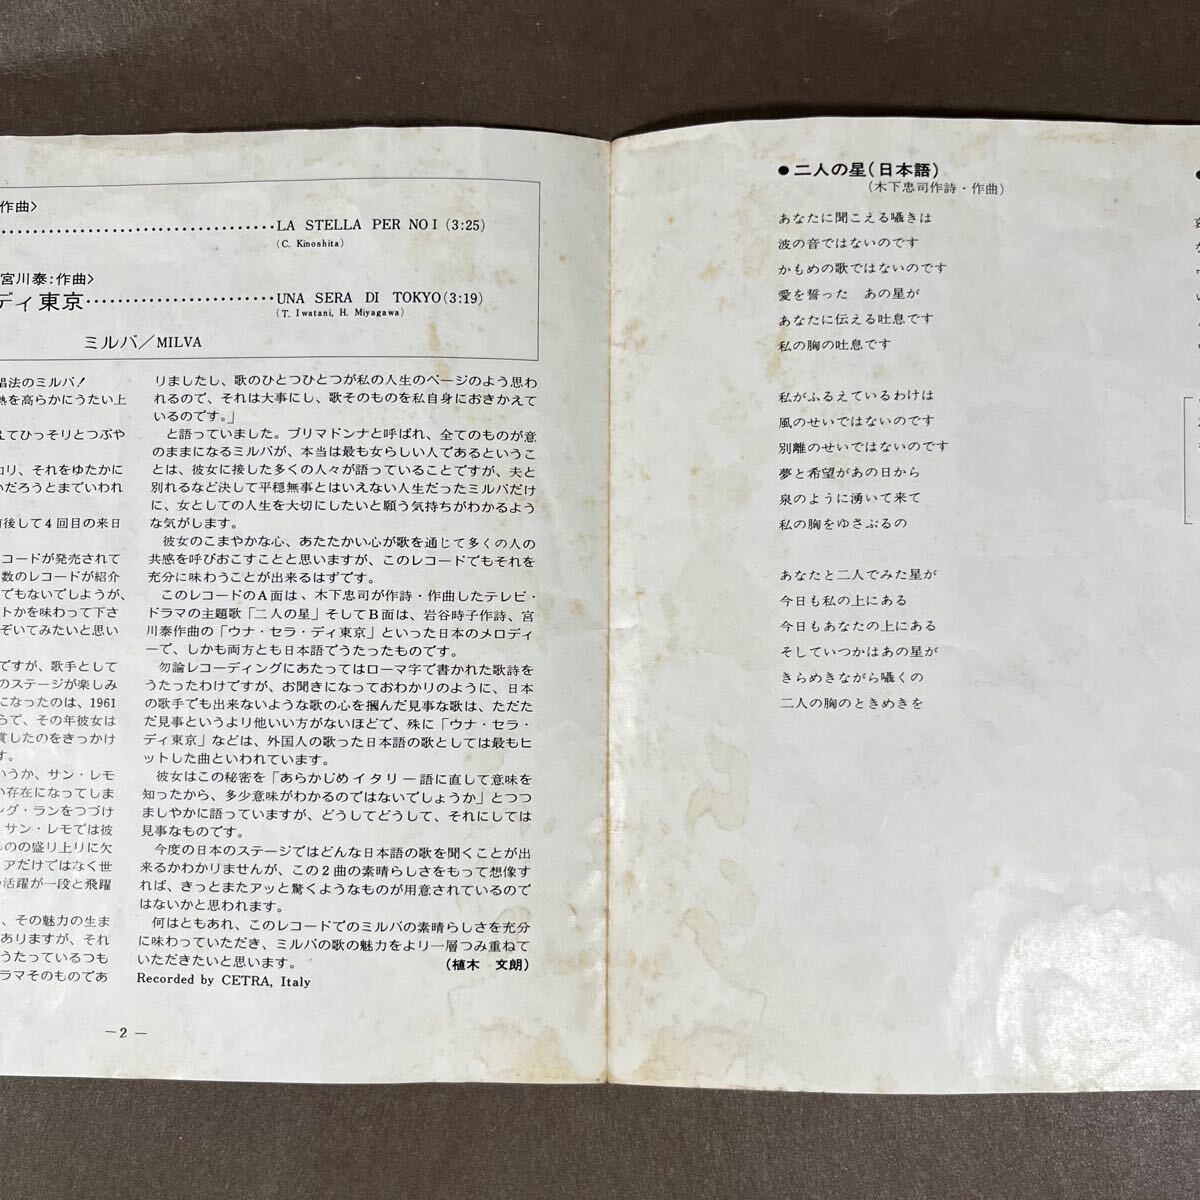 作曲>
LA STELLA PER NOI (3:25)
(C. Kinoshita)
宮川泰:作曲>
ディ東京 UNA SERA DI TOKYO(3:19)
(T. Iwatani, H. Miyagawa)
ミルバ／MILVA
唱法のミルバ！
熱を高らかにうたい上
えてひっそりとつぶや
加り、それをゆたかに
いだろうとまでいわれ
前後して4回目の来日
コードが発売されて
数のレコードが紹介
でもないでしょうが、
トかを味わって下さ
ぞいてみたいと思い
ですが、歌手として
のステージが楽しみ
になったのは、1961
らで、その年彼女は
賞したのをきっかけ
す。
いうか、サン・レモ
い存在になってしま
ング・ランをつづけ
サン・レモでは彼
ものの盛り上りに欠
アだけではなく世
活躍が一段と飛躍
、その魅力の生ま
ありますが、それ
うたっているつも
ラマそのものであ
りましたし、歌のひとつひとつが私の人生のページのよう思わ
れるので、それは大事にし、歌そのものを私自身におきかえて
いるのです。」
と語っていました。プリマドンナと呼ばれ、全てのものが意
のままになるミルバが、本当は最も女らしい人であるというこ
とは、彼女に接した多くの人々が語っていることですが、夫と
別れるなど決して平穏無事とはいえない人生だったミルバだけ
に、女としての人生を大切にしたいと願う気持ちがわかるよう
な気がします。
彼女のこまやかな心、あたたかい心が歌を通じて多くの人の
共感を呼びおこすことと思いますが、このレコードでもそれを
充分に味わうことが出来るはずです。
このレコードのA面は、木下忠司が作詩・作曲したテレビ・
ドラマの主題歌「二人の星」そしてB面は、岩谷時子作詩、宮
川泰作曲の「ウナ・セラ・ディ東京」といった日本のメロディ
ーで、しかも両方とも日本語でうたったものです。
勿論レコーディングにあたってはローマ字で書かれた歌詩を
うたったわけですが、お聞きになっておわかりのように、日本
の歌手でも出来ないような歌の心を摑んだ見事な歌は、ただた
だ見事というより他いい方がないほどで、殊に「ウナ・セラ・
ディ東京」などは、外国人の歌った日本語の歌としては最もヒ
ットした曲といわれています。
彼女はこの秘密を「あらかじめイタリー語に直して意味を
知ったから、多少意味がわかるのではないでしょうか」とつつ
ましやかに語っていますが、どうしてどうして、それにしては
見事なものです。
今度の日本のステージではどんな日本語の歌を聞くことが出
来るかわかりませんが、この2曲の素晴らしさをもって想像す
れば、きっとまたアッと驚くようなものが用意されているので
はないかと思われます。
何はともあれ、このレコードでのミルバの素晴らしさを充分
に味わっていただき、ミルバの歌の魅力をより一層つみ重ねて
いただきたいと思います。 (植木 文朗)
Recorded by CETRA, Italy
－2－
●二人の星(日本語)
(木下忠司作詩・作曲)
あなたに聞こえる囁きは
波の音ではないのです
かもめの歌ではないのです
愛を誓った あの星が
あなたに伝える吐息です
私の胸の吐息です
私がふるえているわけは
風のせいではないのです
別離のせいではないのです
夢と希望があの日から
泉のように湧いて来て
私の胸をゆさぶるの
あなたと二人でみた星が
今日も私の上にある
今日もあなたの上にある
そしていつかはあの星が
きらめきながら囁くの
二人の胸のときめきを